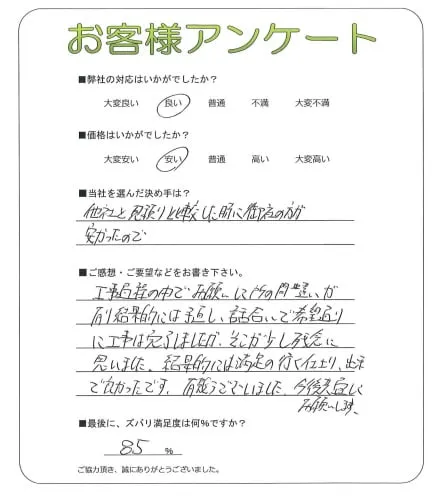 お客様アンケート
■弊社の対応はいかがでしたか？
大変良い 良い 普通 不満 大変不満
■価格はいかがでしたか？
大変安い 安い 普通 高い 大変高い
■当社を選んだ決め手は？
他社と見積りと比較した所に御社の方が
安かったので
■ご感想・ご要望などをお書き下さい。
工事過程の中でお願いした所の間違いが
有り結果的には手直し、話合いで希望通り
に工事は完了しましたが、そこが少し残念に
思いました。結果的には満足の行く仕上り、出来
で良かったです。有難うございました。今後共宜しく
お願いします。
■最後に、ズバリ満足度は何%ですか？
85 %
ご協力頂き、誠にありがとうございました。